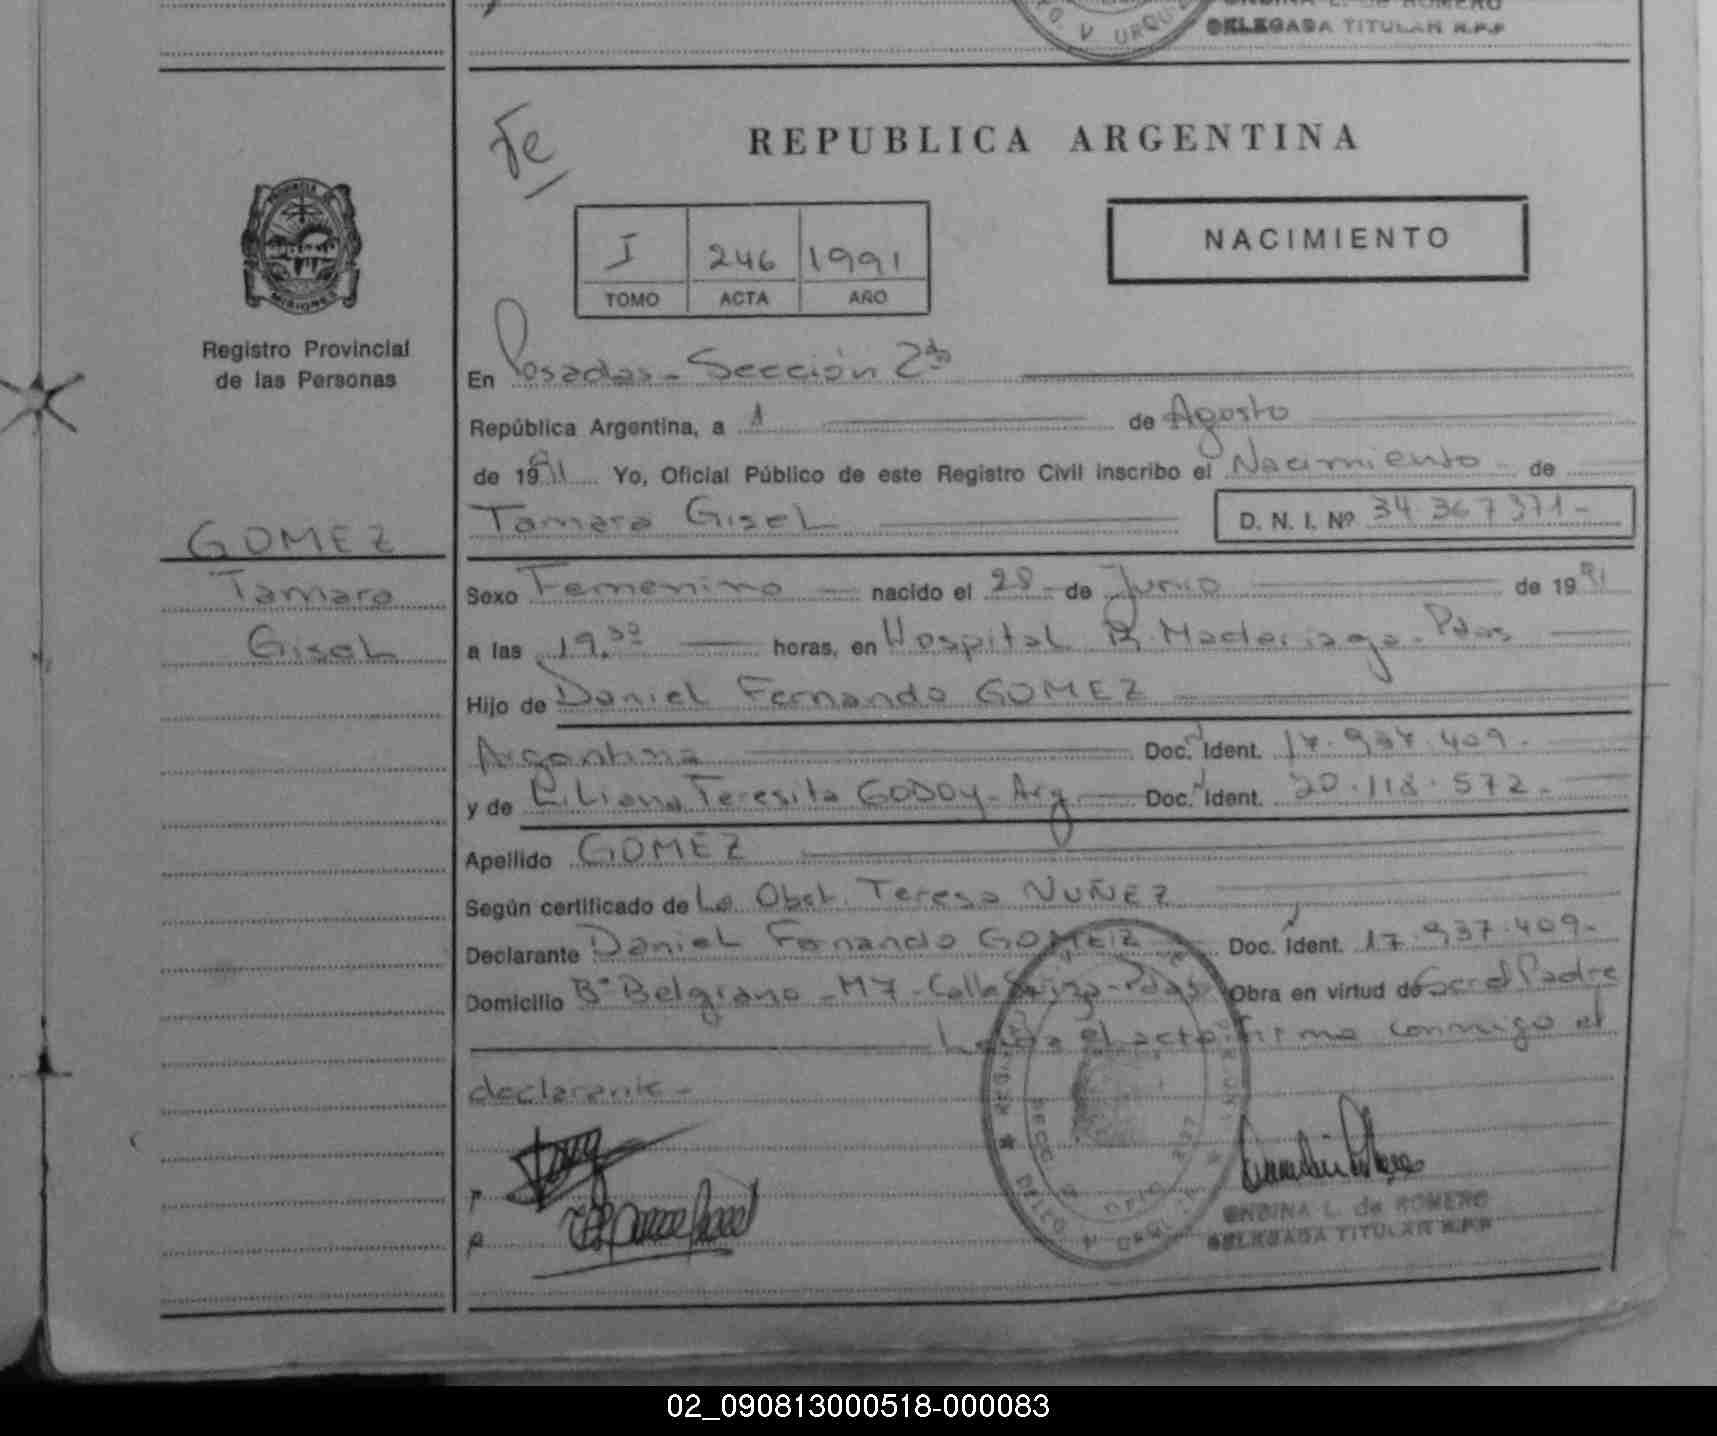 DELEGADA TITULAR R.P.P
Fe
REPUBLICA ARGENTINA
I 246 1991
TOMO ACTA AÑO
NACIMIENTO
PROVINCIA
MISIONES
Registro Provincial
de las Personas
En Posadas - Sección 2da
República Argentina, a 1 de Agosto
de 1991 Yo, Oficial Público de este Registro Civil inscribo el Nacimiento - de
Tamara Gisel D. N. I. Nº 34.367.371-
GOMEZ
Tamara
Gisel
Sexo Femenino nacido el 28 - de Junio de 1991
a las 19.30 horas, en Hospital R. Madariaga - Pdas
Hijo de Daniel Fernando GOMEZ
Argentina Doc. Ident. 17.937.409.
y de Liliana Teresita GODOY - Arg. Doc. Ident. 20.118.572.
Apellido GOMEZ
Según certificado de La Obst. Teresa NUÑEZ
Declarante Daniel Fernando GOMEZ Doc. Ident. 17.937.409.
Domicilio Bº Belgrano - M7 - Calle - Pdas Obra en virtud de Ser el Padre
Leída el acta firma conmigo el
declarante -
ONDINA L. de ROMERO
DELEGADA TITULAR R.P.P
02_090813000518-000083